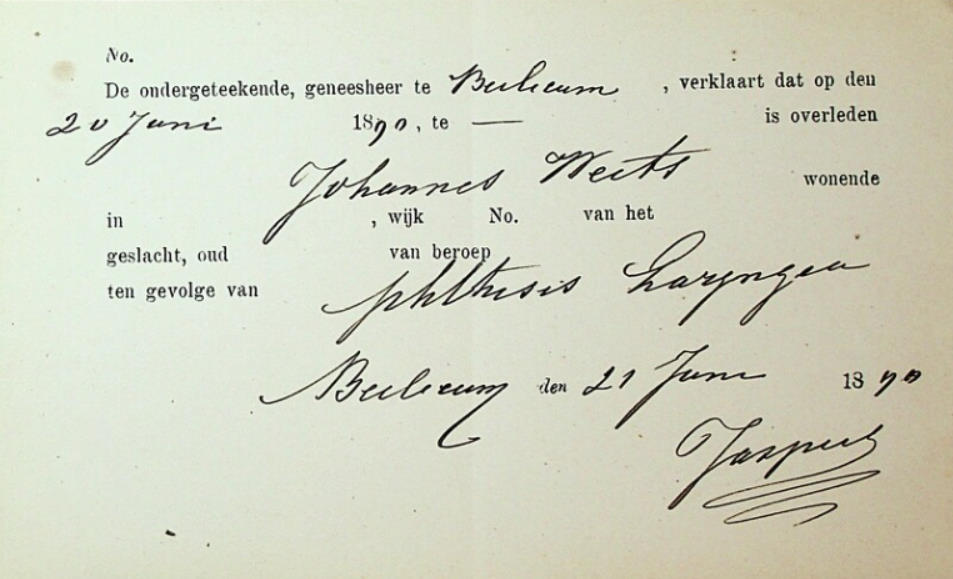 No.
De ondergeteekende, geneesheer te Berlicum, verklaart dat op den
20 Juni 1890, te — is overleden
Johannes Weerts wonende
in , wijk No. van het
geslacht, oud van beroep
ten gevolge van phthisis Laryngea
Berlicum den 21 Juni 1890
Jaspers